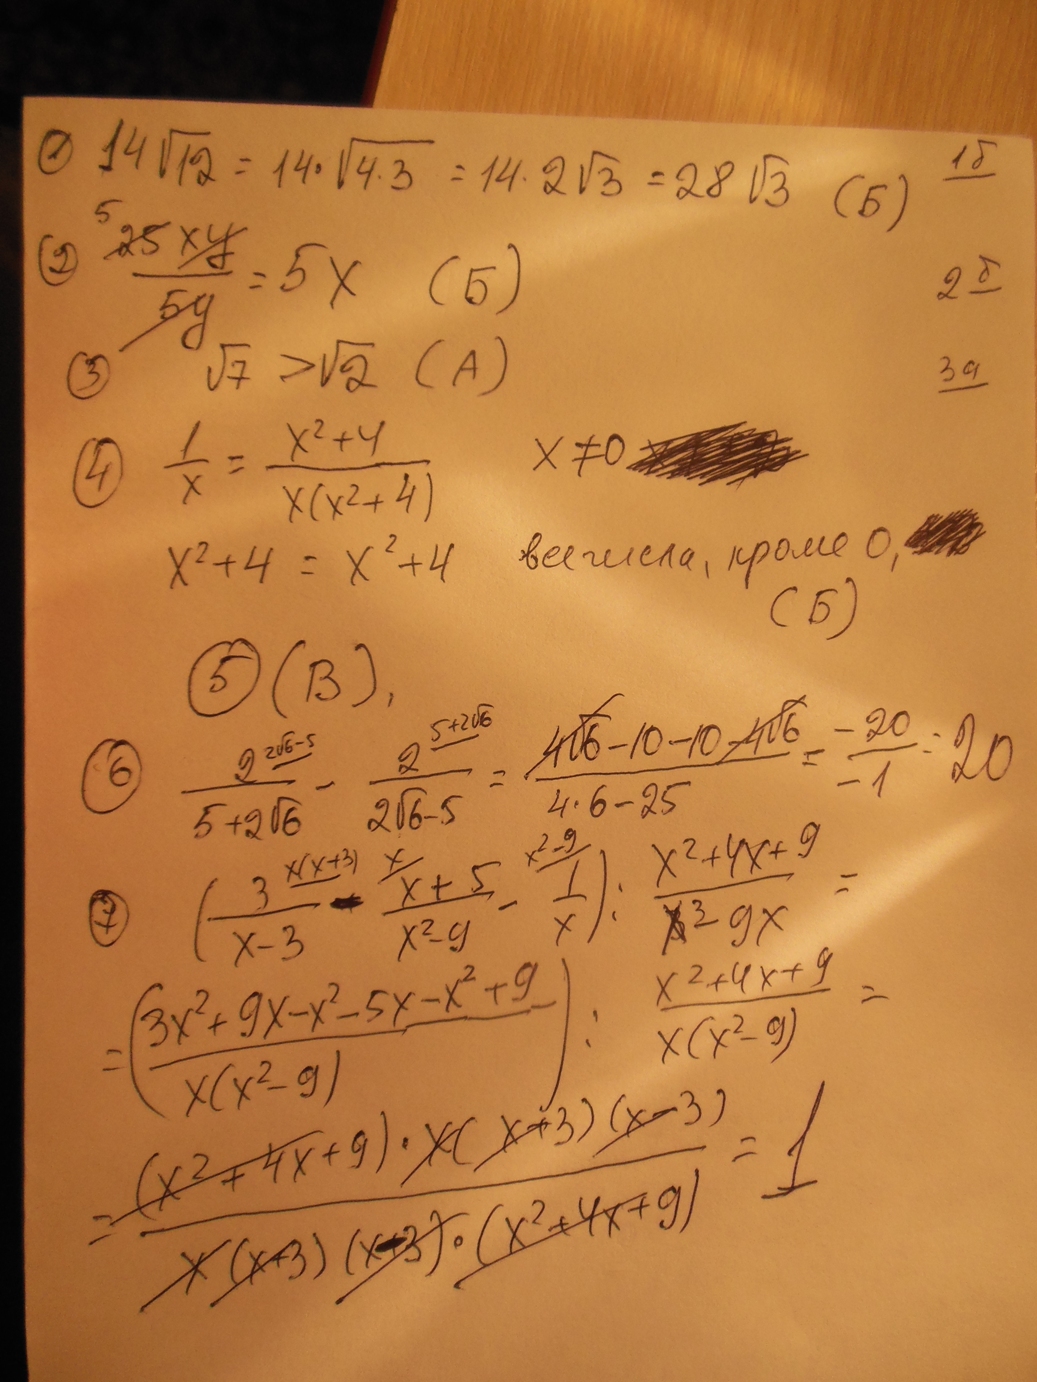 ① 14√12 = 14·√4·3 = 14·2√3 = 28√3 (Б) 1б
② 5 25xy/5y = 5x (Б) 2б
③ √7 > √2 (А) 3а
④ 1/x = x²+4/x(x²+4) x≠0
x²+4 = x²+4 все числа, кроме 0,
(Б)
⑤ (В),
⑥ 2 2√6-5/5+2√6 - 2 5+2√6/2√6-5 = 4√6-10-10-4√6/4·6-25 = -20/-1 = 20
⑦ (3 x(x+3)/x-3 - x x+5/x²-9 - x²-9 1/x) : x²+4x+9/x³-9x =
= (3x²+9x-x²-5x-x²+9/x(x²-9)) : x²+4x+9/x(x²-9) =
= (x²+4x+9)·x(x+3)(x-3)/x(x+3)(x-3)·(x²+4x+9) = 1